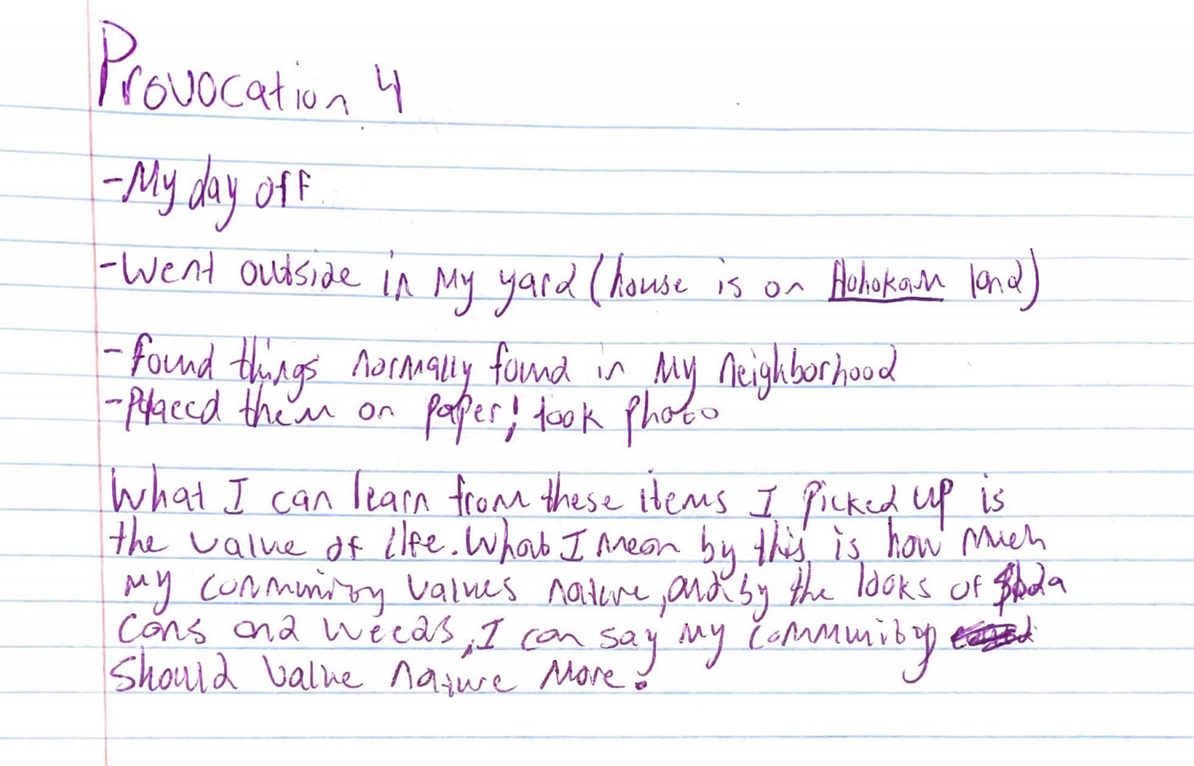 Provocation 4
-My day off.
-Went outside in my yard (house is on Hohokam land)
-found things normally found in my neighborhood
-Placed them on paper! took photo
What I can learn from these items I picked up is
the value of life. What I mean by this is how much
my community values nature, and by the looks of soda
cans and weeds, I can say my community
should value nature more.